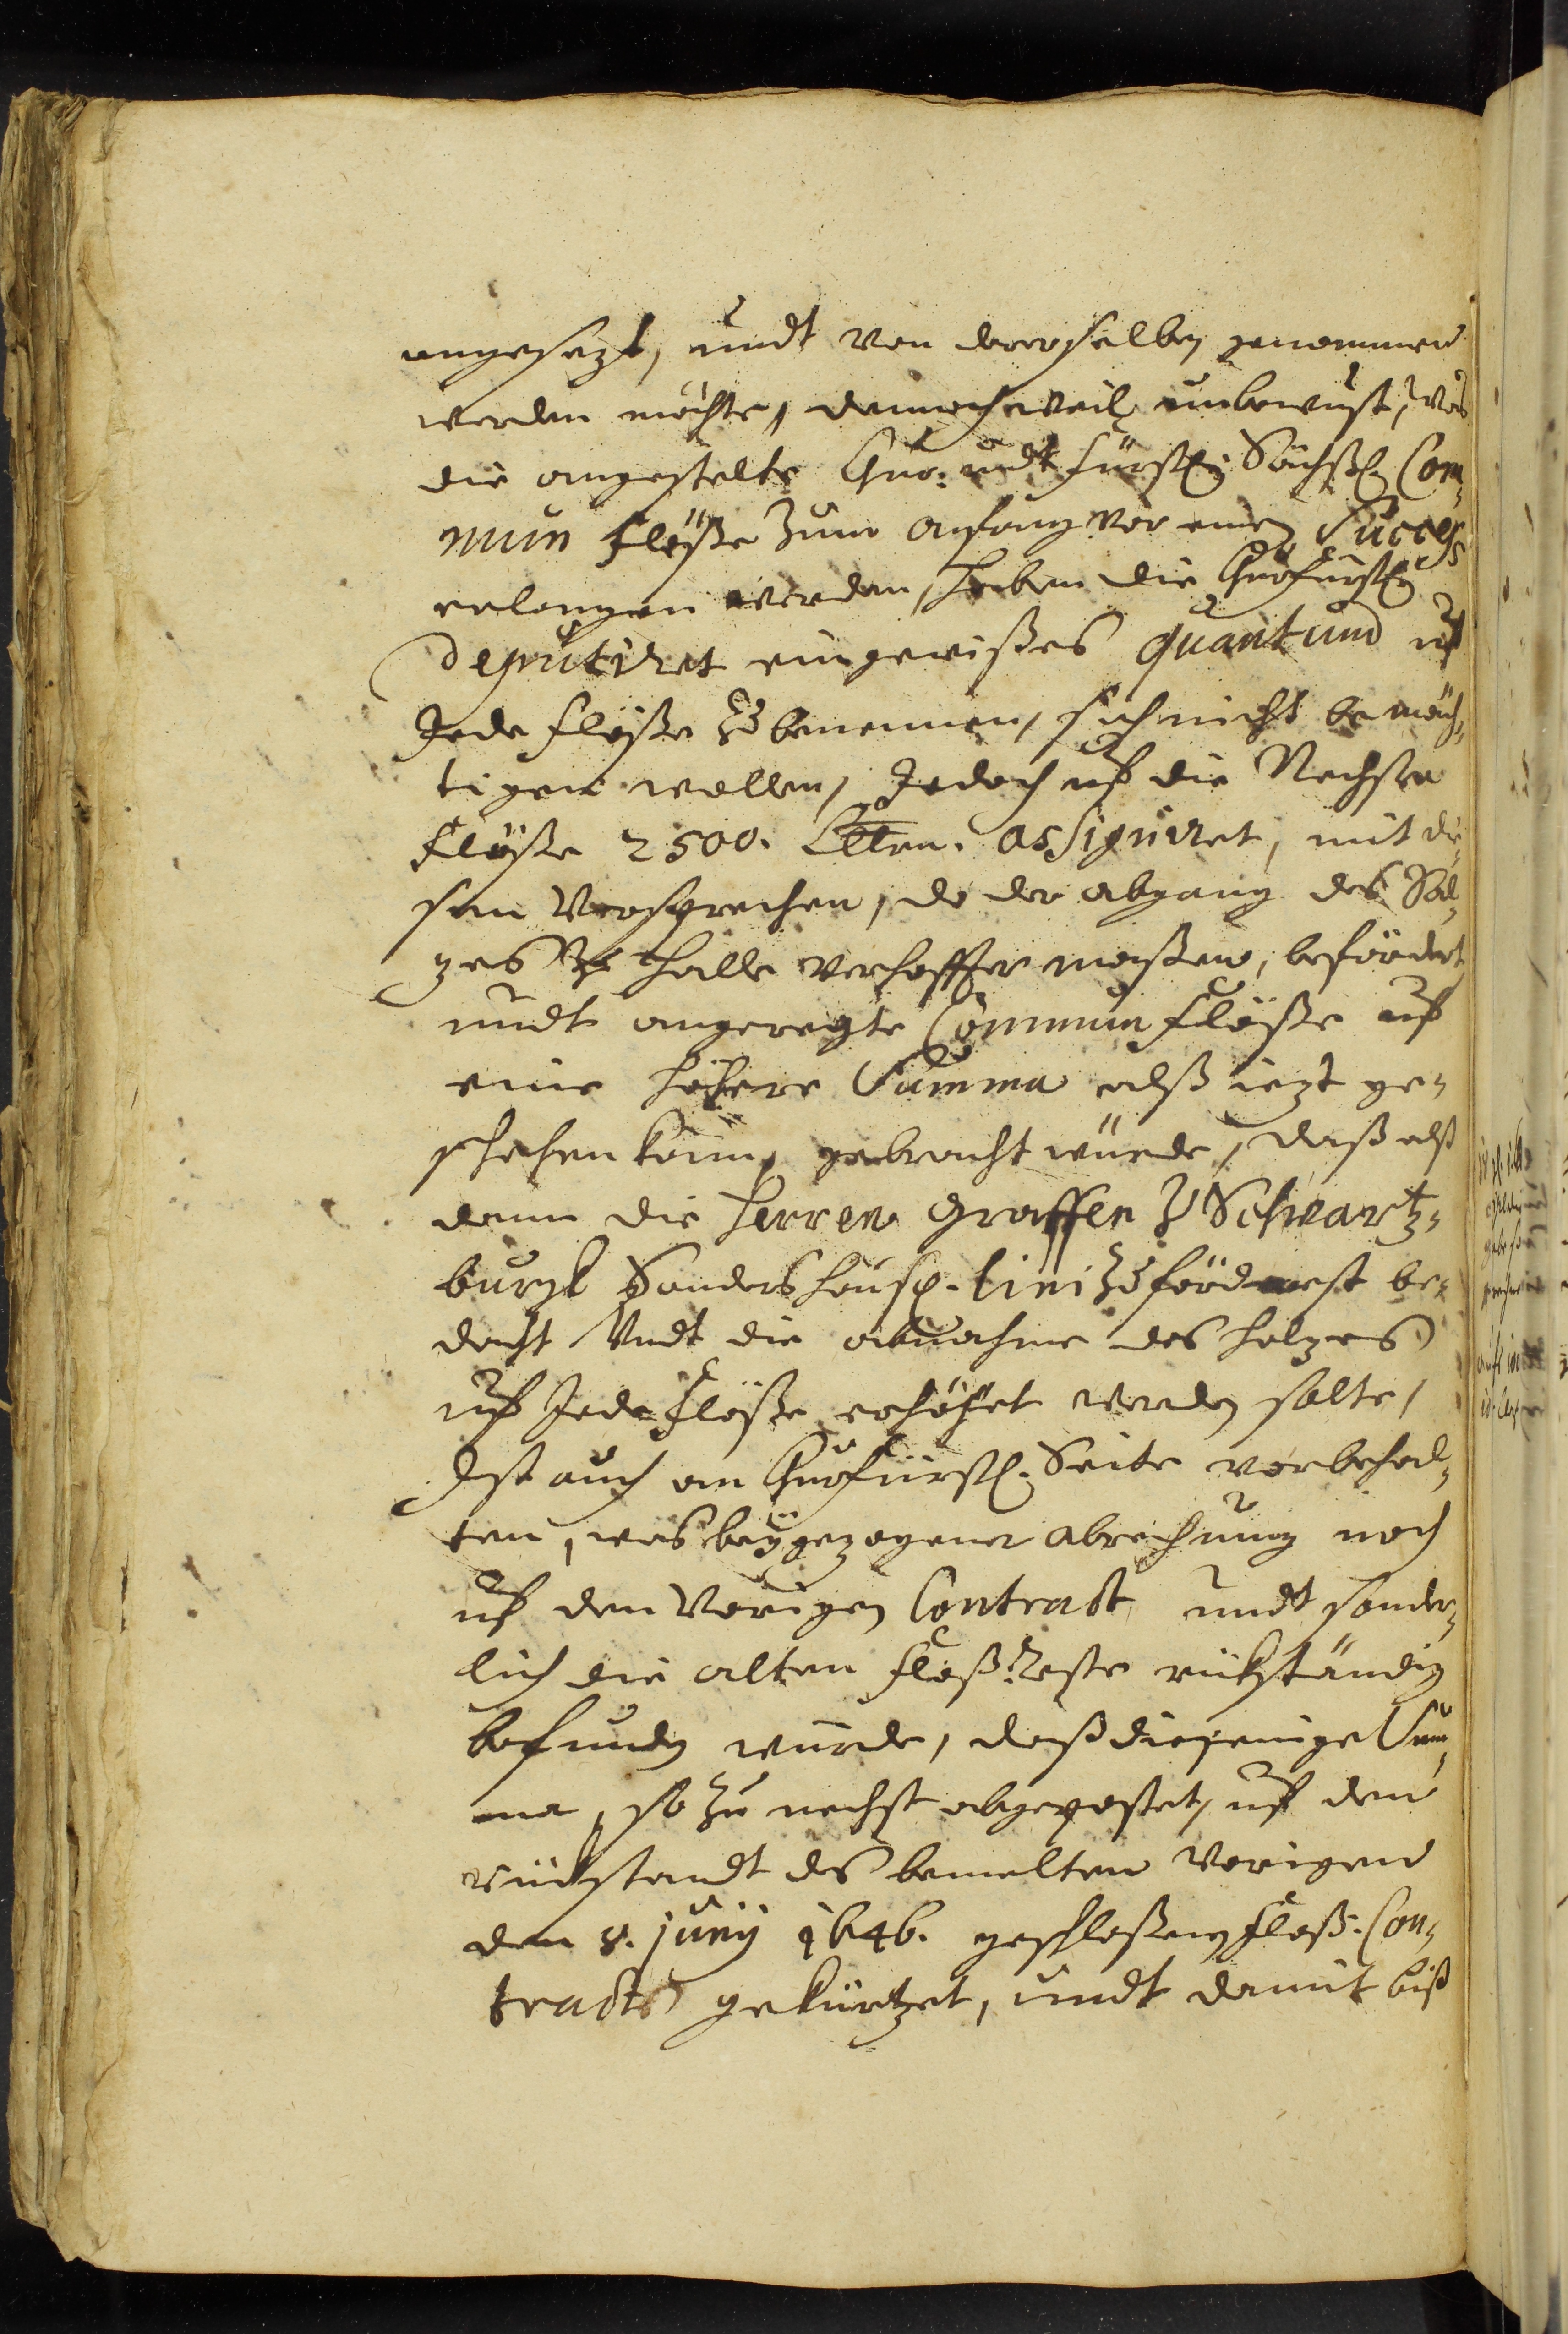 angesezt, undt von deroselben genommen
werden möchte, dennoch weil unbewust, was
die angestelte Chur: undt Fürstl: Sächß. Com-
mun Flöße zum anfang vor einen Succeß
erlangen werden, haben die Churfürstl:
Deputiret ein gewißes quantum uf
Jede Flöße zu benennen, sich nicht bemäch-
tigen wollen, Jedoch uf die Nechste
Flöße 2500. Clftrn. assigniret, mit die-
sem Versprechen, do der abgang des Sal-
zes zu Halle verhoffter maßen, befördert
undt angeregte Commun Flöße uf
eine höhere Summa alß iezt ge-
schehen kann, gebracht würde, daß alß
dann die Herren Graffen zu Schwartz-
burgk Sondershaus. Lini zuförderst be-
dacht Undt die abnahme des Holzes
uf Jede Flöße erhöhet werden solte,
Ist auch an Churfürstl. Seite vorbehal-
ten, was bey gezogener abrechnung noch
uf den Vorigen Contract undt sonder-
lich die alten Floß: Reste rückständig
befunden würde, daß diejenige Sum-
ma, so zu nechst abgepostet, uf den
rückstandt des bemelten Vorigen
den 8. Junÿ 1646. geschloßenen Floß. Con-
tracts gekürtzet, undt damit biß